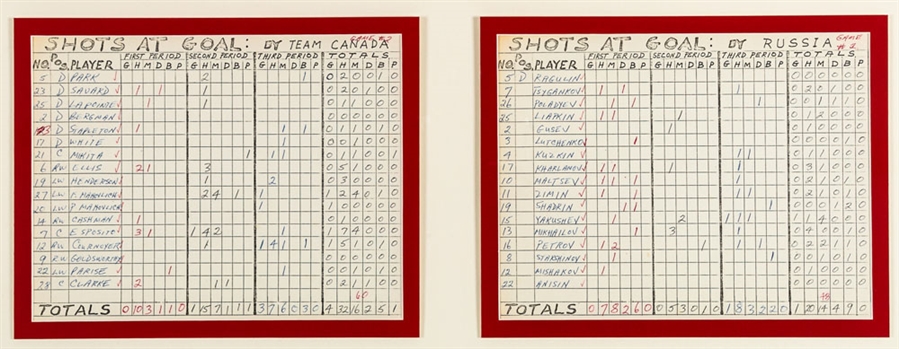 SHOTS AT GOAL: BY TEAM CANADA GAME #2
FIRST PERIOD SECOND PERIOD THIRD PERIOD TOTALS
NO. POS. PLAYER G H M D B P G H M D B P G H M D B P G H M D B P
5 D PARK 2 1 0 2 0 0 1 0
23 D SAVARD 1 1 1 0 2 0 1 0 0
25 D LAPOINTE 1 1 0 1 1 0 0 0
2 D BERGMAN 0 0 0 0 0 0
D STAPLETON 1 1 1 0 1 1 0 1 0
17 D WHITE 1 1
21 C MIKITA 1 1 1 0 1 1 0 0 1
6 RW ELLIS 2 1 3 0 5 1 0 0 0
19 LW HENDERSON 1 2 0 3 0 0 0 0
27 LW F. MAHOVLICH 2 4 1 1 1 2 4 0 1 0
20 LW P. MAHOVLICH 1 1 0 0 0 0 0
14 RW CASHMAN 1 0 1 0 0 0 0
7 C E. ESPOSITO 3 1 1 4 2 1 7 4 0 0 0
12 RW COURNOYER 1 1 4 1 1 1 5 1 0 1 0
9 RW GOLDSWORTHY 0 0 0 0 0 0
22 LW PARISE 1 1 0 0 1 0 1 0
28 C CLARKE 2 1 1 0 2 1 1 0 0
60
TOTALS 0 10 3 1 1 0 1 15 7 1 1 1 3 7 6 0 3 0 4 32 16 2 5 1
SHOTS AT GOAL: BY RUSSIA GAME #2
FIRST PERIOD SECOND PERIOD THIRD PERIOD TOTALS
NO. POS. PLAYER G H M D B P G H M D B P G H M D B P G H M D B P
5 D RAGULIN 0 0 0 0 0 0
7 TSYGANKOV 1 1 1 0 2 0 1 0 0
26 POLADYEV 1 1 1 0 0 1 1 1 0
25 LIAPKIN 1 1 1 0 1 2 0 0 0
2 GUSEV 1 0 1 0 0 0 0
3 LUTCHENKO 1
4 KUZKIN 1 1 0 1 1 0 0 0
17 KHARLAMOV 1 1 1 1 0 3 1 0 0 0
10 MALTSEV 1 1 1 1 0 2 1 0 1 0
11 ZIMIN 1 1 1 1 0 2 2 0 0 0
19 SHADRIN 1 1 1 0 0 0 1 2 0
15 YAKUSHEV 1 2 1 1 1 1 1 4 0 0 0
13 MIKHAILOV 1 3 0 4 0 0 1 0
16 PETROV 1 2 1 1 1 0 2 2 1 1 0
8 STARSHINOV 1 1
12 MISHAKOV 1 0 1 0 0 0 0
22 ANISIN 0 0 0 0 0 0
48
TOTALS 0 7 8 2 6 0 0 5 3 0 1 0 1 8 3 2 2 0 1 20 14 4 9 0